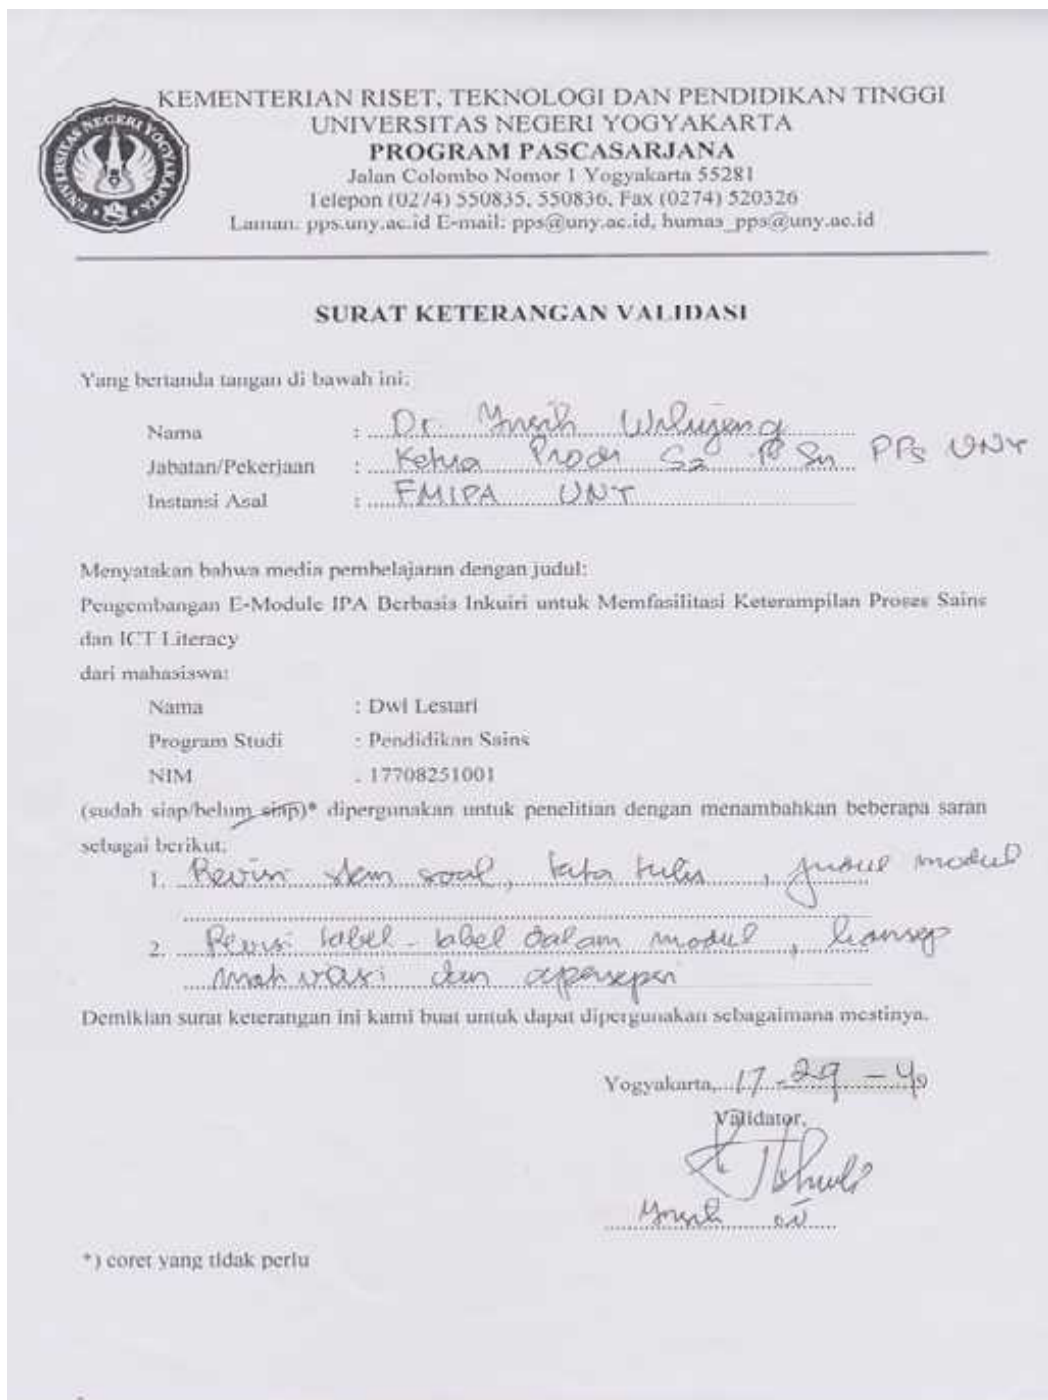 UNIVERSITAS NEGERI YOGYAKARTA
KEMENTERIAN RISET, TEKNOLOGI DAN PENDIDIKAN TINGGI
UNIVERSITAS NEGERI YOGYAKARTA
PROGRAM PASCASARJANA
Jalan Colombo Nomor 1 Yogyakarta 55281
Telepon (0274) 550835, 550836, Fax (0274) 520326
Laman: pps.uny.ac.id E-mail: pps@uny.ac.id, humas_pps@uny.ac.id
SURAT KETERANGAN VALIDASI
Yang bertanda tangan di bawah ini:
Nama : Dr. Insih Wilujeng
Jabatan/Pekerjaan : Ketua Prodi S2 PPs UNY
Instansi Asal : FMIPA UNY
Menyatakan bahwa media pembelajaran dengan judul:
Pengembangan E-Module IPA Berbasis Inkuiri untuk Memfasilitasi Keterampilan Proses Sains
dan ICT Literacy
dari mahasiswa:
Nama : Dwi Lestari
Program Studi : Pendidikan Sains
NIM : 17708251001
(sudah siap/belum siap)* dipergunakan untuk penelitian dengan menambahkan beberapa saran
sebagai berikut:
1. Revisi stem soal, tata tulis, judul modul
2. Revisi tabel-tabel dalam modul, konsep
motivasi dan apersepsi
Demikian surat keterangan ini kami buat untuk dapat dipergunakan sebagaimana mestinya.
Yogyakarta, 17
Validator,
Insih
*) coret yang tidak perlu